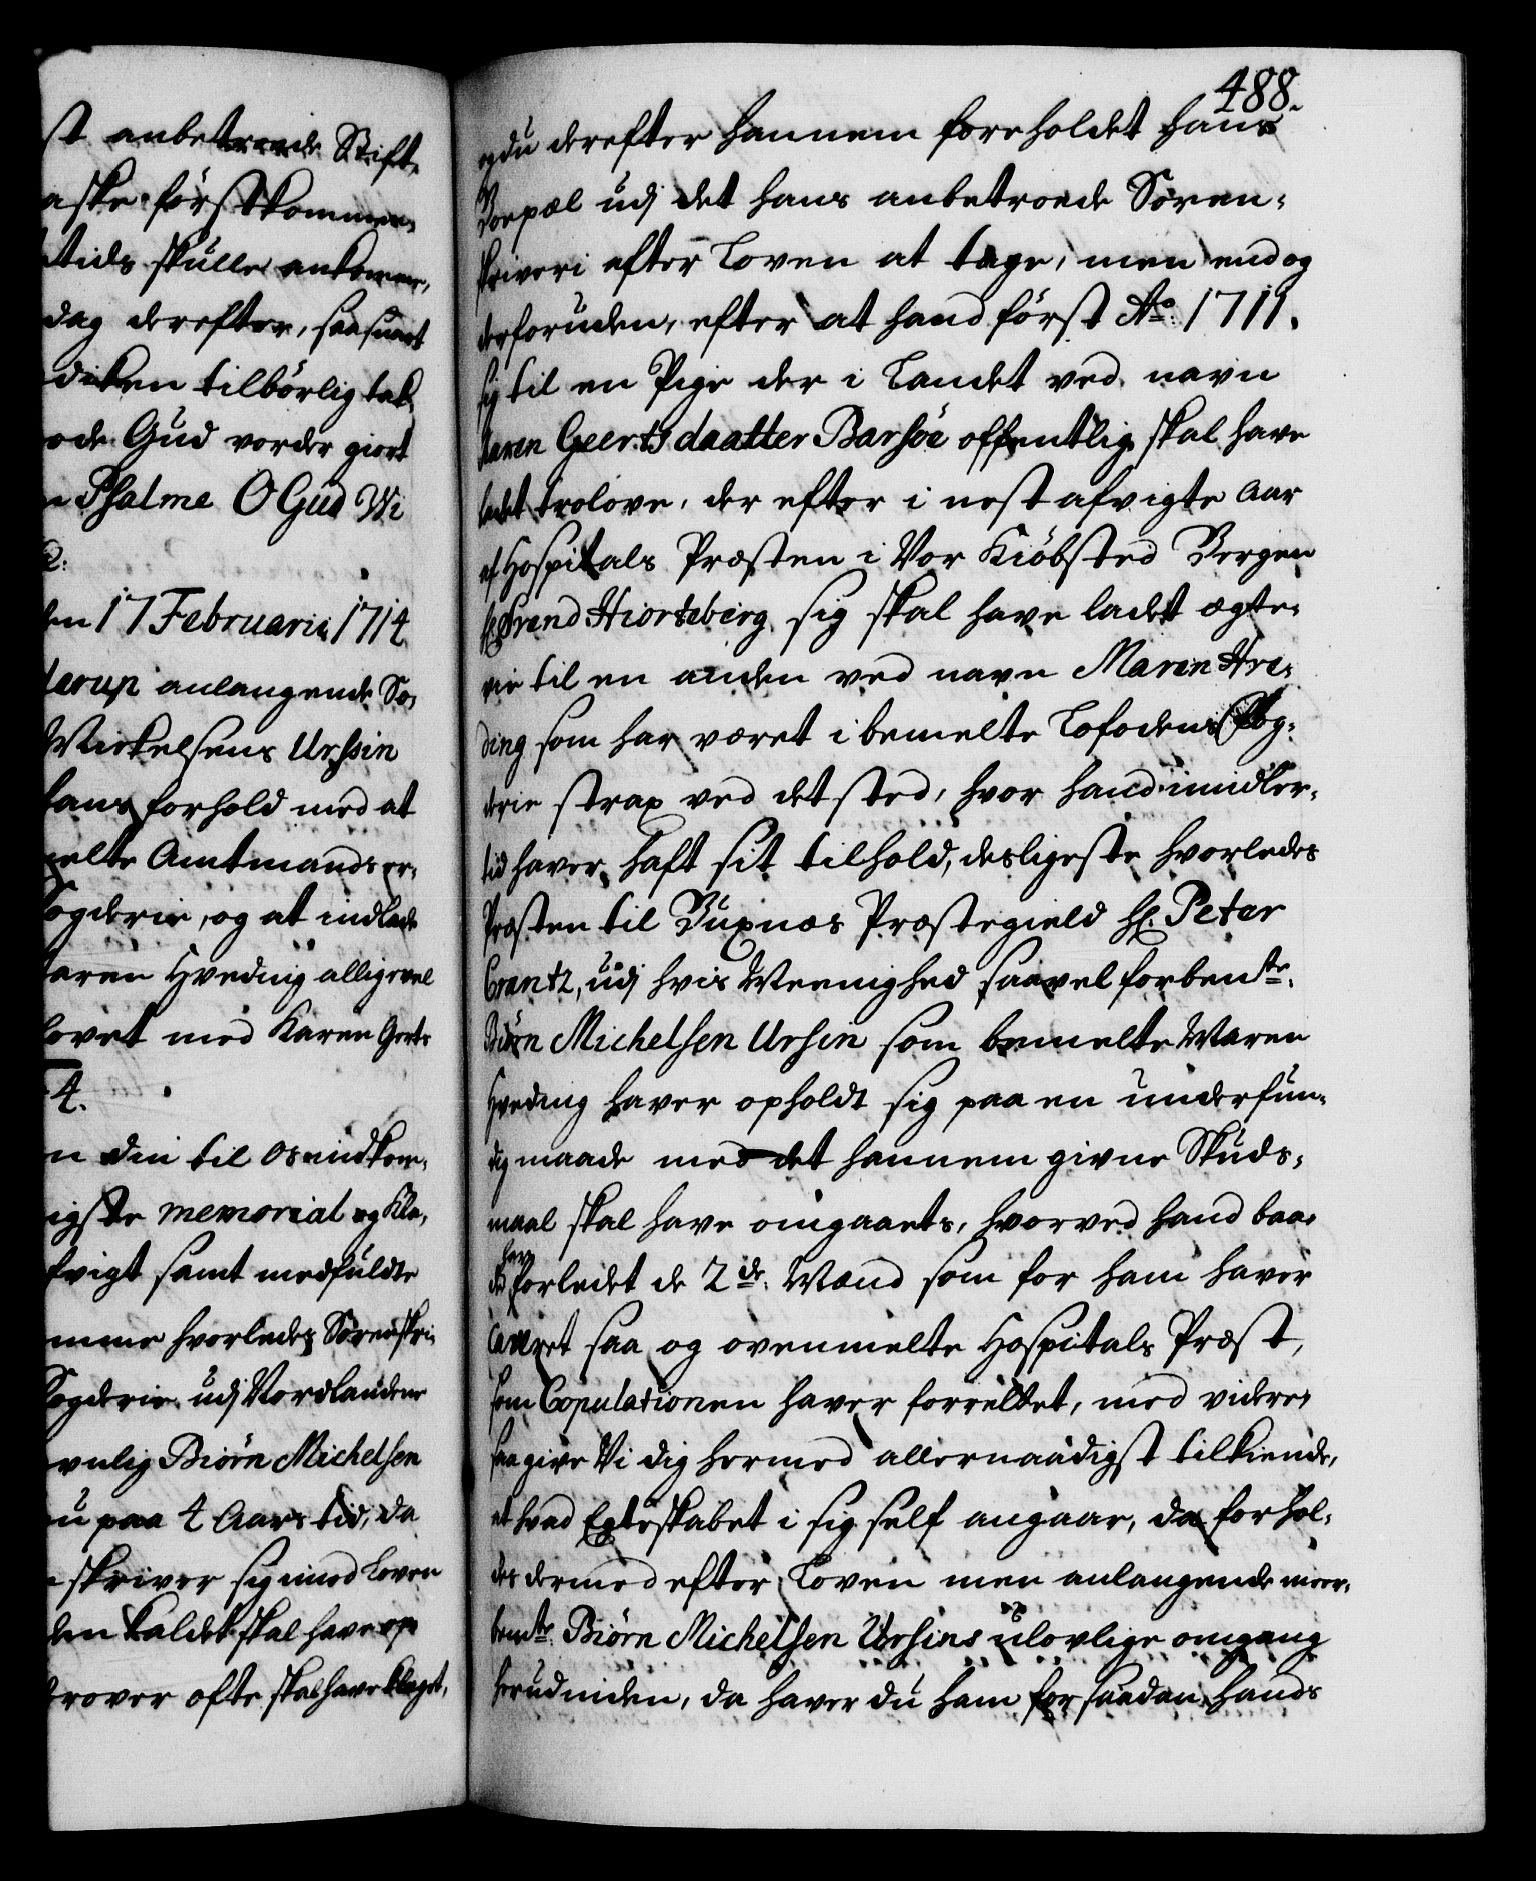 st anbetroede Stift,
aske förstkommen,
tids skulle ankomme,
dag derefter, saasnart
dicken tilbörlig tak,
ode Gud vorder giort
n Psalme O Gud Wi
den 17 Februarii 1714
anlangende So,
Mickelsens Urssin
hans forhold med at
melte Amtmands er,
fogderie, og at indlade
aren Hveding alligevel
lovet med Karen Geerts
4.
n din til Os indkom,
igste memorial og Kla,
fvigt samt medfuldte
mme hvorledes Sörenskri
fogderie udj Nordlandene
vnlig Biörn Michelsen
u paa 4 Aars tid, da
skriver sig imod Loven
den kaldet skal have op
rover ofte skal have klaget,
488.
og du derefter hannem foreholdet hans
Boepæl udj det hans anbetroede Sören,
skriveri efter Loven at tage, men endog
derforuden, efter at hand först Ao. 1711.
sig til en Pige der i Landet ved navn
Karen Geerts daatter Barsöe offentlig skal have
ladet trolove, der efter i nest afvigte Aar
af Hospitals Præsten i Vor Kiöbsted Bergen
hr. Trend Hiorteberg sig skal have ladet ægte,
vie til en anden ved navn Maren Hve,
ding som har været i bemelte Lofodens Fog,
derie strax ved det sted, hvor hand imidler,
tid haver haft sit tilhold, desligeste hvorledes
Præsten til Buxnæs Præstegield hr. Peter
Crantz, udj hvis Meenighed saavel forbente.
Biörn Michelsen Ursin som bemelte Maren
Hveding haver opholdt sig paa en underfun,
dig maade med det hannem givne Skuds,
maal skal have omgaaets, hvorved hand baa,
de har forledet de 2de. Mænd som for ham haver
Caveret saa og ovenmelte Hospitals Præst,
som Copulationen haver forrettet, med videre,
saa give Vi dig hermed allernaadigst tilkiende,
at hvad Egteskabet i sig self angaar, da forhol,
des dermed efter Loven men anlangende meer,
bemte. Biörn Michelsen Ursins ulovlige omgang
herudinden, da haver du ham for saadan hands